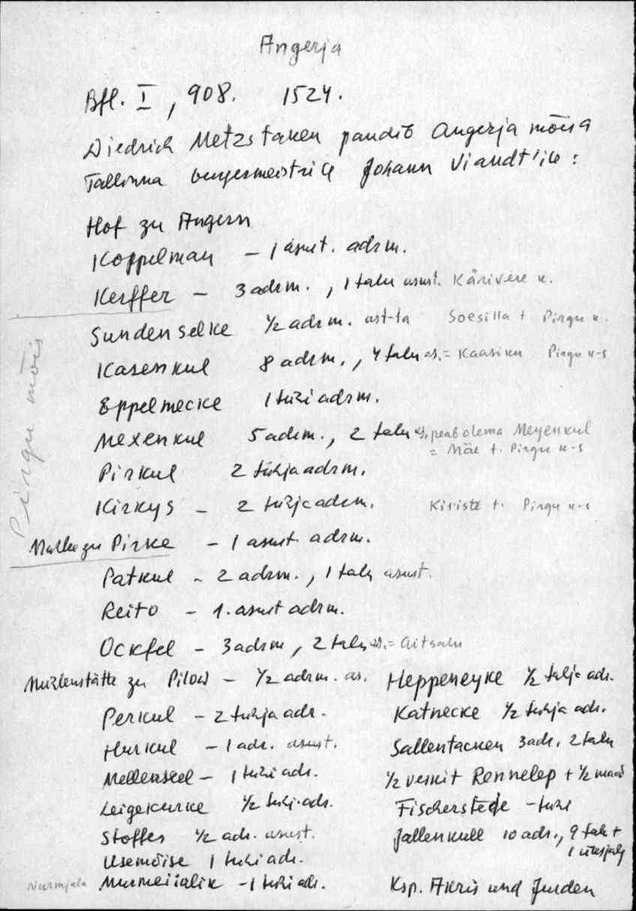 Angerja
Bfl. I, 908. 1524.
Diedrich Metzstaken pandib Angerja mõisa
Tallinna Johann Viandt'ile:
Hof zu Angern
Koppelman – 1 asust. adrm.
Kerffer – 3 adrm., 1 talu asust. Kärivere k.
Sundenselke ½ adrm. ast-ta Soesilla t Pirgu k.
Kasenkul 8 adrm., 4 talu as. = Kaasiku Pirgu k-s
Eppelmecke 1 tühi adrm.
Mexenkul 5 adrm., 2 talu as, peab olema Meyenkul
= Mäe t. Pirgu k-s
Pirkul 2 tühja adrm.
Kirkys – 2 tühja adrm. Kiriste t. Pirgu k-s
Pirgu mõis
zu Pirke – 1 asust. adrm.
Patkul – 2 adrm., 1 talu asust.
Reito – 1. asust adrm.
Ockfel – 3 adrm, 2 talu as. = Aitsalu
zu Pilow – ½ adrm. as.
Perkul – 2 tühja adr.
Hurkul – 1 adr. asust.
Mellenseel – 1 tühi adr.
Leigekurke ½ tühi adr.
Stoffes ½ adr. asust.
Usemöise 1 tühi adr.
Nurmjala Murmeiialik – 1 tühi adr.
Heppeneyke ½ tühja adr.
Katnecke ½ tühja adr.
Sallentacken 3 adr. 2 talu
½ veskit Rennelep + ½ maad
Fischerstede – tühi
Jallenkull 10 adr., 9 talu +
1 üksjalg
Ksp. Akris und Jurden